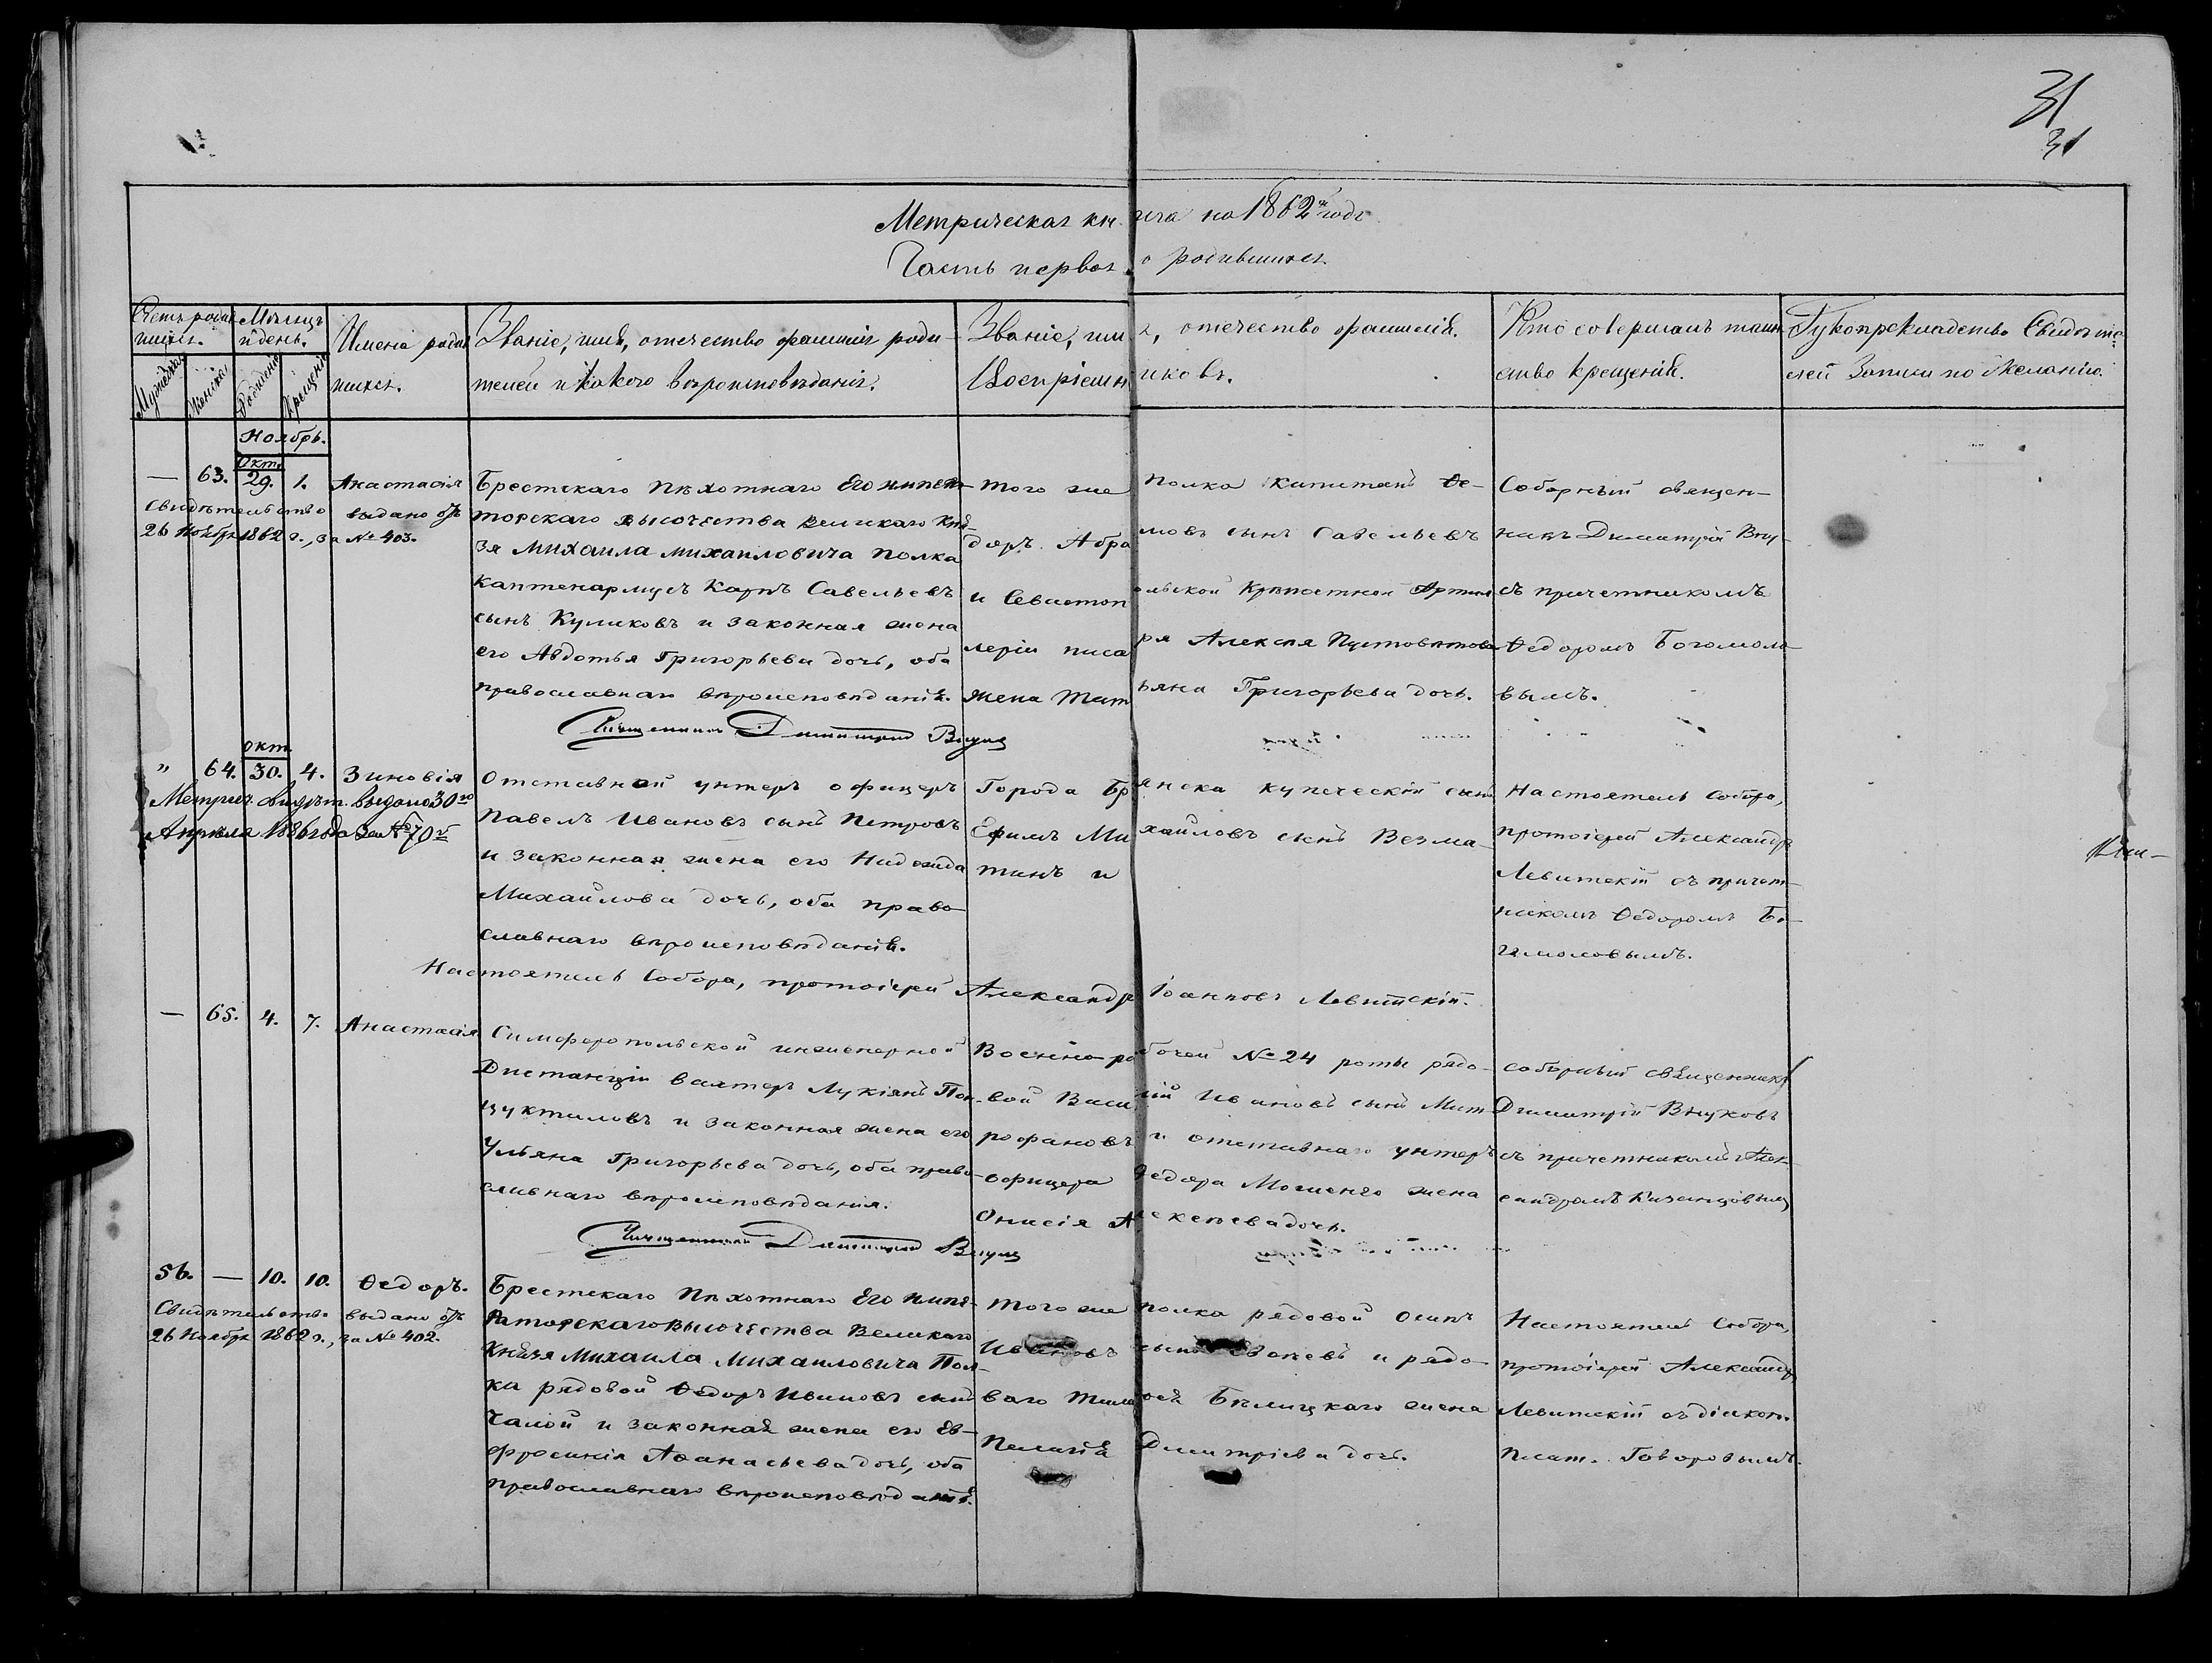 31
31
Метрическая книга на 1862й годъ
Часть первая о родившихся
Счетъ родившихся.
Мужеска
Женска
Мѣсяцъ и день.
Рожденія
Крещенія
Имена родившихся.
Званіе, имя, отечество фамилія родителей и какого вѣроисповѣданія.
Званіе, имя, отечество фамилія. Воспріемниковъ.
Кто совершалъ таинство крещенія.
Рукоприкладство Свидѣтелей Записи по желанію.
Ноябрь.
— 63. Окт. 29. 1. Анастасія
Свидѣтельство выдано
26 Ноября 1862 г., за № 403.
Брестскаго Пѣхотнаго Его Импера-
торскаго высочества великаго Кня-
зя Михаила Михаиловича полка
каптенармусъ Карпъ Савельевъ
сынъ Куликовъ и законная жена
его Авдотья Григорьева дочь, оба
православнаго вѣроисповѣданія.
Того же полка
Абрамовъ сынъ Савельевъ
и Севастопольской Крѣпостной Артил-
леріи писаря Алексѣя Пустовитова
жена Татьяна Григорьева дочь.
Соборный священ-
никъ Димитрій Вну-
съ причетникомъ
Ѳедоромъ Богомоло-
вымъ.
Священникъ Димитрій
" 64. Окт. 30. 4. Зиновія
Метрич. свидѣт. выдано 30го
Апрѣля 1886 года за № 70м
Отставной унтеръ офицеръ
Павелъ Ивановъ сынъ Петровъ
и законная жена его Надежда
Михайлова дочь, оба право-
славнаго вѣроисповѣданія.
Города Брянска купеческій сынъ
Ефимъ Михайловъ сынъ Безма-
тинъ и
Настоятель Собора,
протоіерей Александръ
Левитскій съ причет-
никомъ Ѳедоромъ Бо-
гомоловымъ.
Настоятель Собора, протоіерей Александръ Іоанновъ Левитскій.
— 65. 4. 7. Анастасія
Симферопольской инженерной
Дистанціи вахтеръ Лукіянъ
и законная жена его
Ульяна Григорьева дочь, оба право-
славнаго вѣроисповѣданія.
Военно-рабочей № 24 роты рядо-
вой Василій Ивановъ сынъ Мит-
рофановъ и отставнаго унтеръ
офицера Ѳедора жена
Анисія Алексѣева дочь.
соборный священникъ
Димитрій Внуковъ
съ причетникомъ Алек-
сандромъ
Священникъ Димитрій
56. — 10. 10. Ѳедоръ.
Свидѣтельство выдано
26 Ноября 1862 г., за № 402.
Брестскаго Пѣхотнаго Его Импе-
раторскаго высочества Великаго
Князя Михаила Михаиловича Пол-
ка рядовой Ѳедоръ Ивановъ сынъ
Чалой и законная жена его Ев-
фросинія Аѳанасьева дочь, оба
православнаго вѣроисповѣданія.
Того же полка рядовой Осипъ
Ивановъ сынъ и рядо-
ваго Бѣлицкаго жена
Пелагія Димитріева дочь.
Настоятель Собора,
протоіерей Александръ
Левитскій съ діакон.
Говоровымъ.